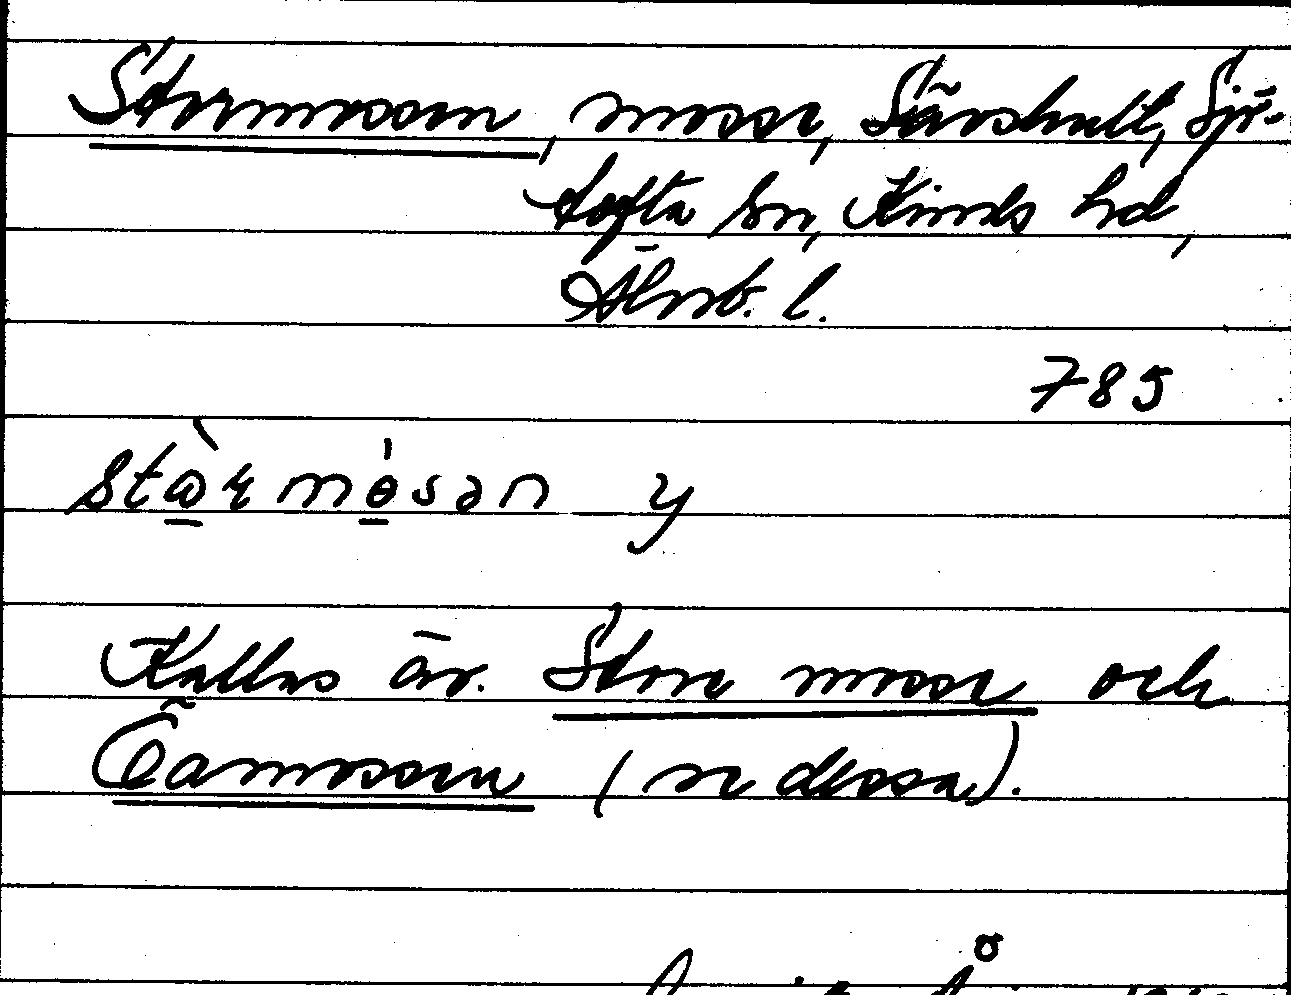 Stormossen, mosse, Sävshult, Sjö-
tofta sn, Kinds hd,
Älvsb. l.
785
stɷ̀rmɵ́sən y
Kallas äv. Stora mosse och
Öamossen (se dessa).